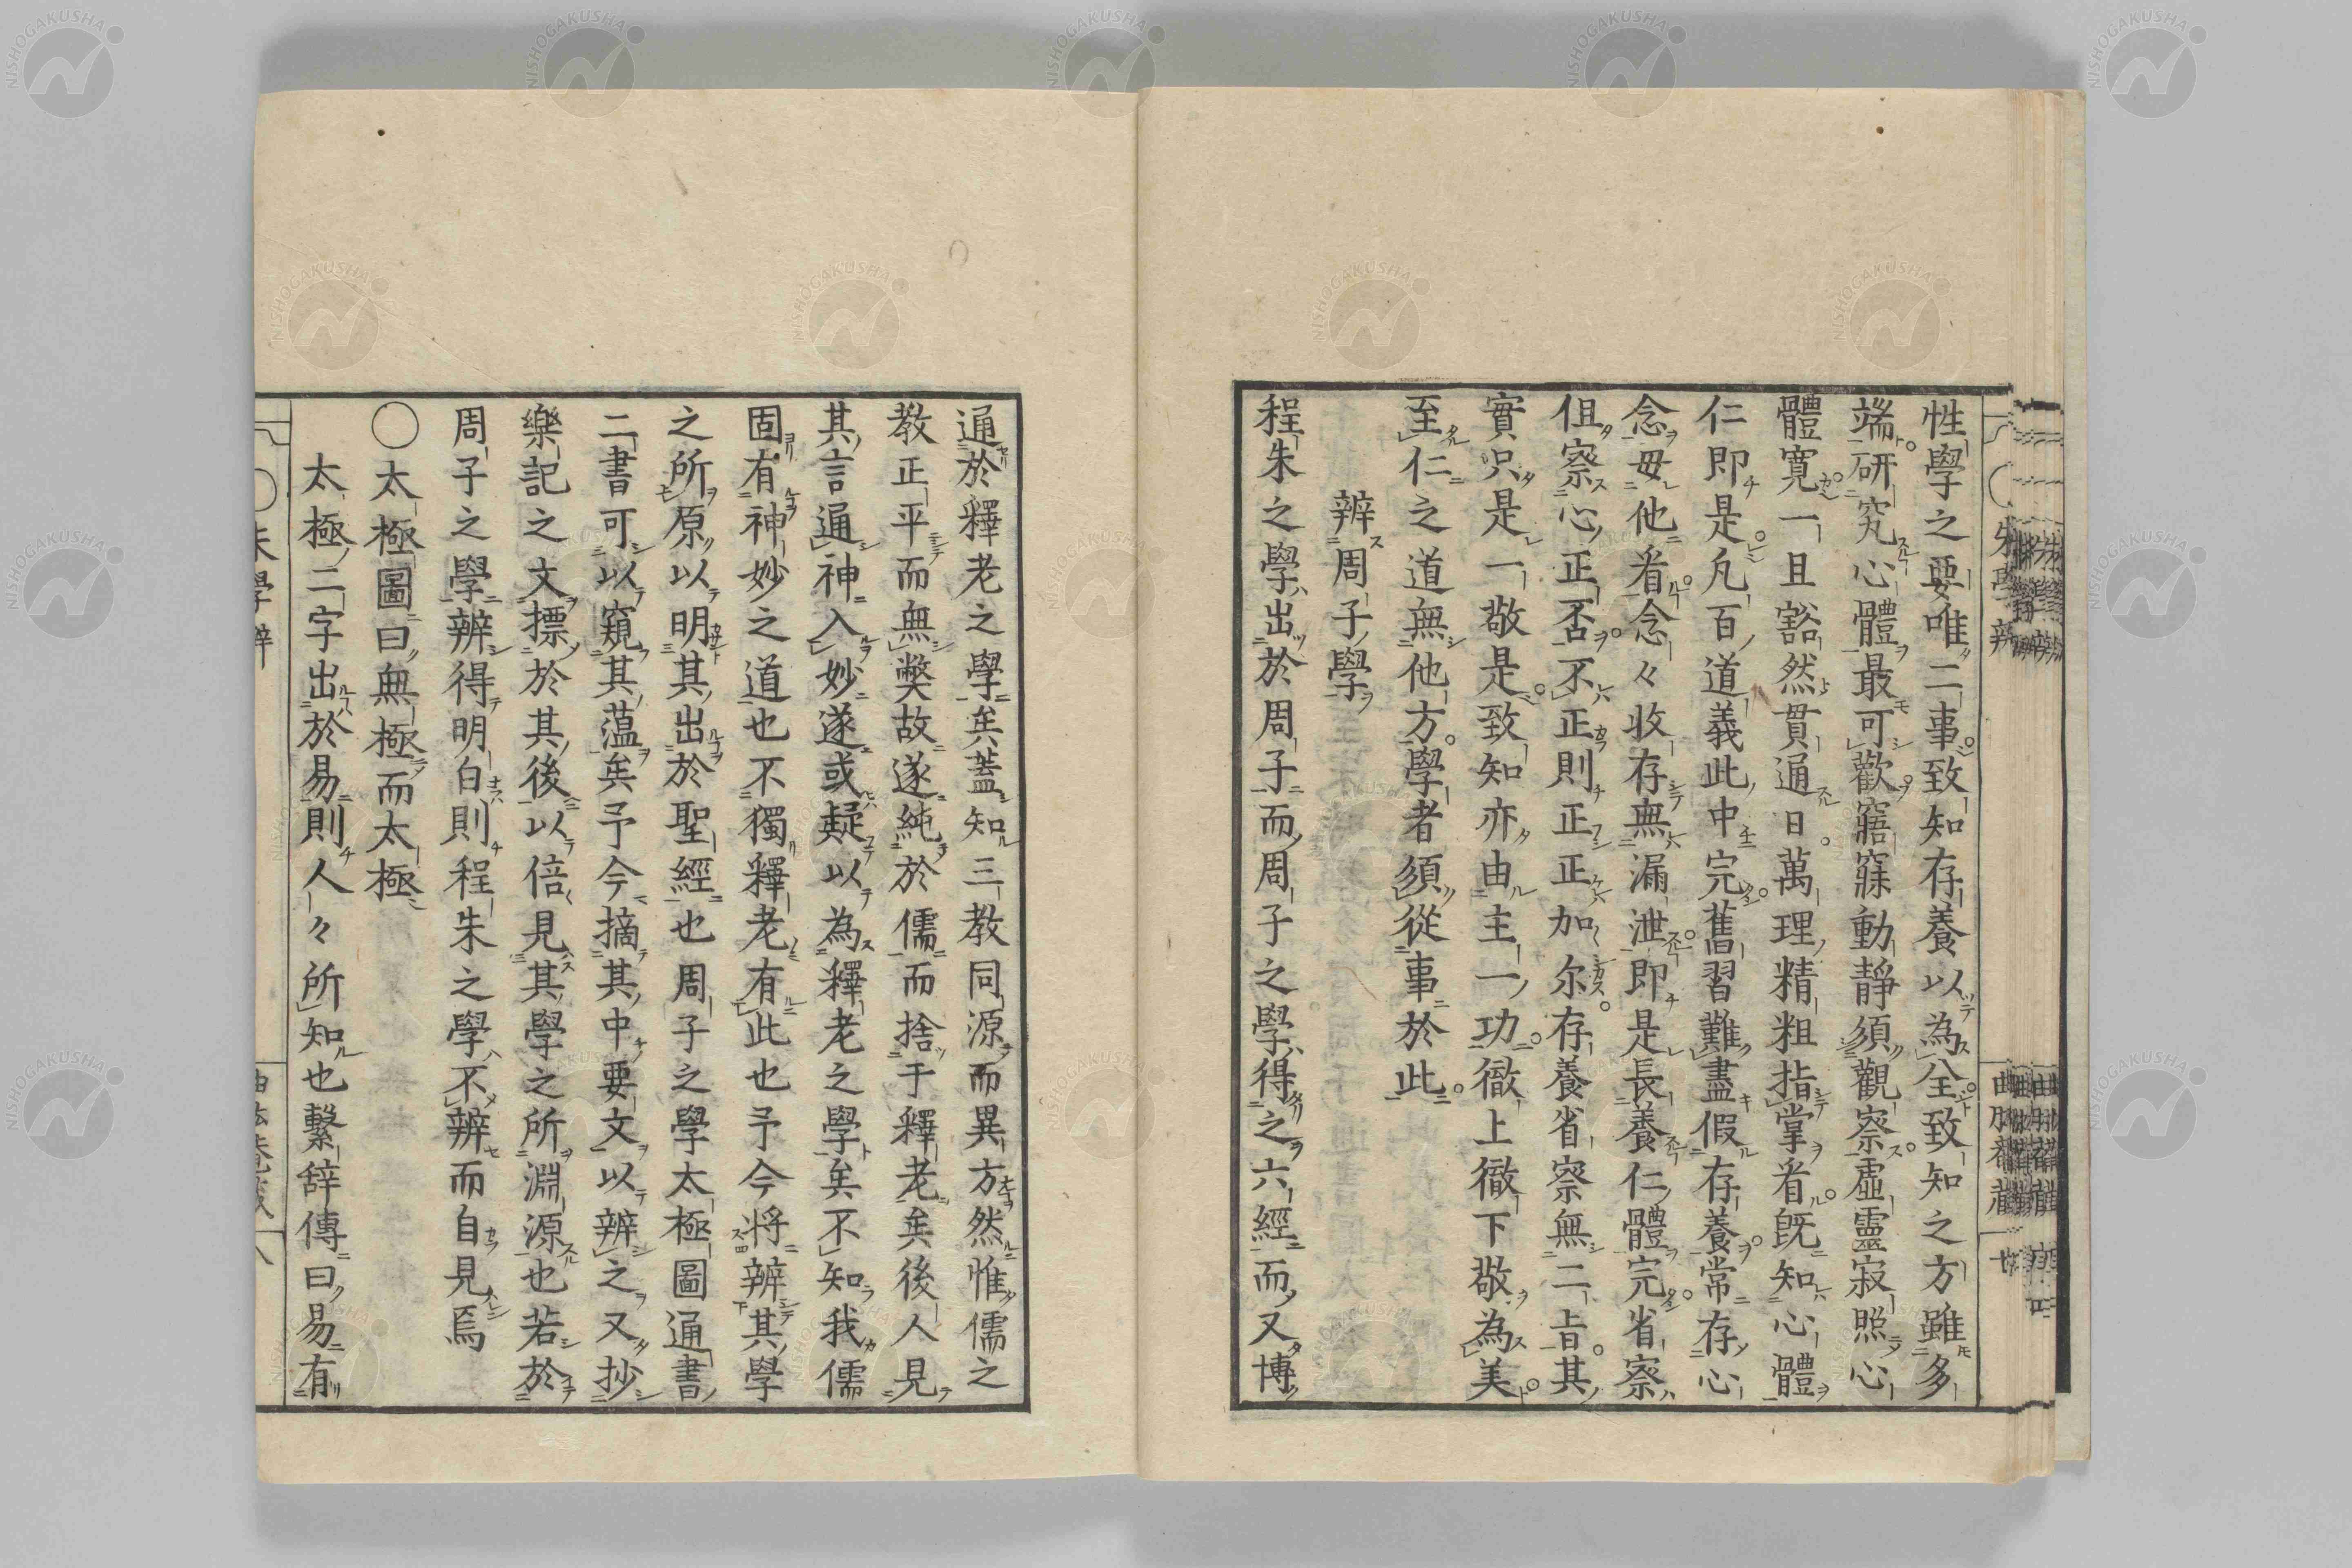 性學之要唯二事致知存養以為全致知之方雖多
端研究心體最可歡寤寐動靜須觀察虛靈寂照心
體寬一旦豁然貫通日萬理精粗指掌看既知心體
仁即是凡百道義此中完舊習難盡假存養常存心
念毋他看念々收存無漏泄即是長養仁體完省察
但察心正否不正則正正加尔存養省察無二旨其
實只是一敬是致知亦由主一功徹上徹下敬為美
至仁之道無他方學者須從事於此
辨周子學
程朱之學出於周子而周子之學得之六經而又博
通於釋老之學矣蓋知三教同源而異方然惟儒之
教正平而無弊故遂純於儒而捨于釋老矣後人見
其言通神入妙遂或疑以為釋老之學矣不知我儒
固有神妙之道也不獨釋老有此也予今将辨其學
之所原以明其出於聖經也周子之學太極圖通書
二書可以窺其蕰矣予今摘其中要文以辨之又抄
樂記之文標於其後以倍見其學之所淵源也若於
周子之學辨得明白則程朱之學不辨而自見焉
○太極圖曰無極而太極
太極二字出於易則人々所知也繫辞傳曰易有
朱學辨
八
NISHOGAKUSHA